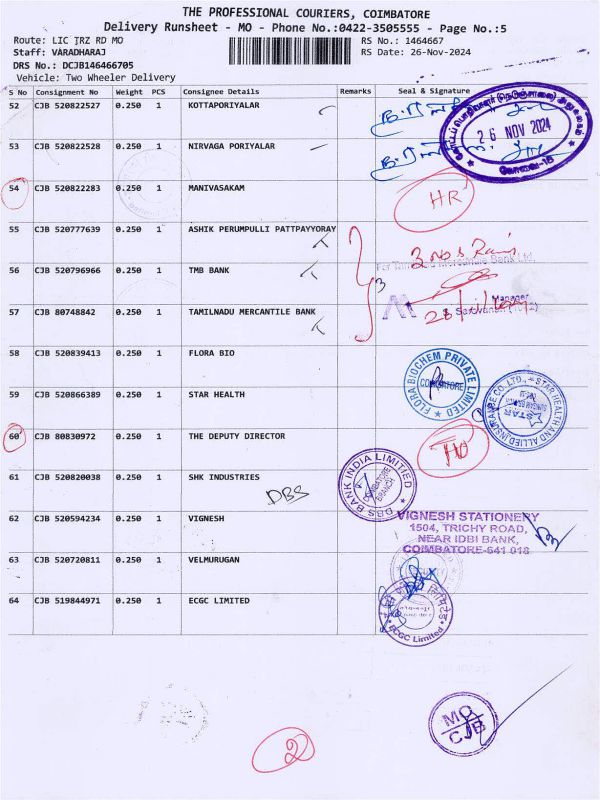 THE PROFESSIONAL COURIERS, COIMBATORE
Delivery Runsheet - MO - Phone No.:0422-3505555 - Page No.:5
Route: LIC TRZ RD MO
RS No.: 1464667
Staff: VARADHARAJ
RS Date: 26-Nov-2024
DRS No.: DCJB146466705
Vehicle: Two Wheeler Delivery
S No Consignment No Weight PCS Consignee Details Remarks Seal & Signature
52 CJB 520822527 0.250 1 KOTTAPORIYALAR
26 NOV 2024
53 CJB 520822528 0.250 1 NIRVAGA PORIYALAR
54 CJB 520822283 0.250 1 MANIVASAKAM
HR
55 CJB 520777639 0.250 1 ASHIK PERUMPULLI PATTPAYYORAY
56 CJB 520796966 0.250 1 TMB BANK
3
Manager
57 CJB 80748842 0.250 1 TAMILNADU MERCANTILE BANK
58 CJB 520839413 0.250 1 FLORA BIO
FLORA BIOCHEM PRIVATE LIMITED
COIMBATORE
59 CJB 520866389 0.250 1 STAR HEALTH
STAR HEALTH AND ALLIED INSURANCE CO. LTD.,
STAR
60 CJB 80830972 0.250 1 THE DEPUTY DIRECTOR
61 CJB 520820038 0.250 1 SHK INDUSTRIES
DBS
DBS BANK INDIA LIMITED
COIMBATORE BRANCH
62 CJB 520594234 0.250 1 VIGNESH
VIGNESH STATIONERY
1504, TRICHY ROAD,
NEAR IDBI BANK,
COIMBATORE-641 018
63 CJB 520720811 0.250 1 VELMURUGAN
64 CJB 519844971 0.250 1 ECGC LIMITED
ECGC Limited
MO
CJB
2